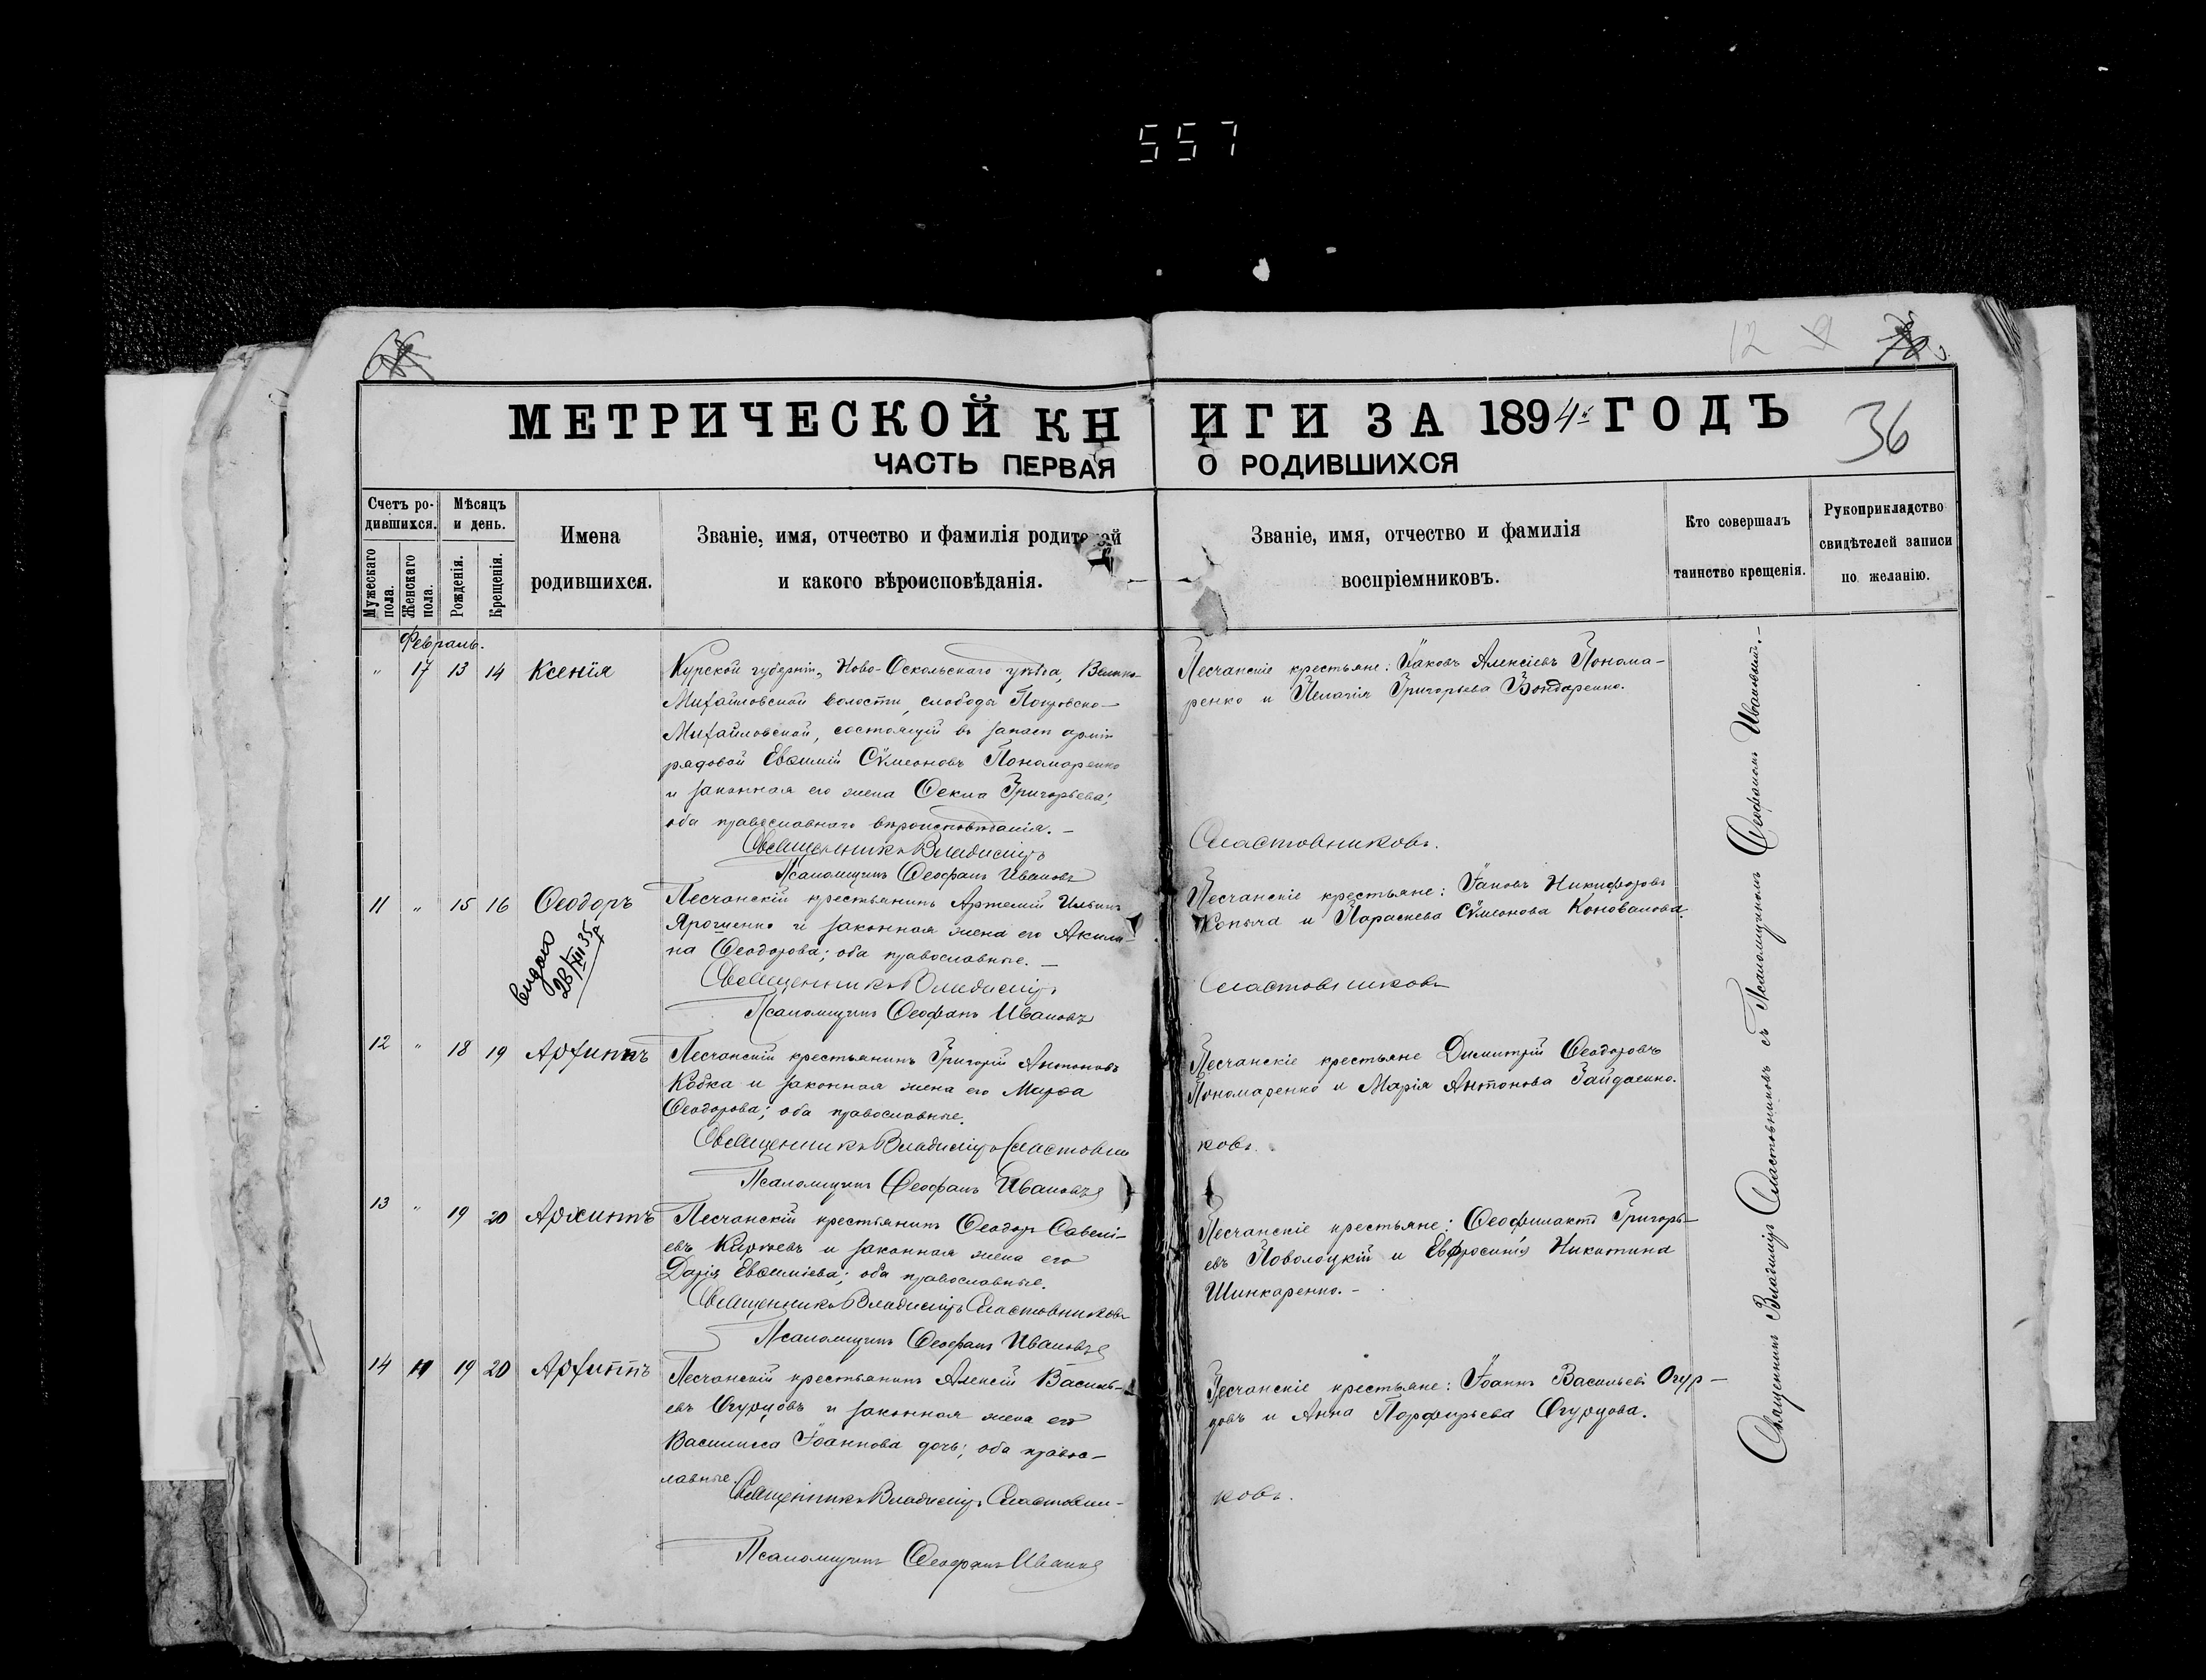 557
12
36
МЕТРИЧЕСКОЙ КНИГИ ЗА 1894й ГОДЪ
ЧАСТЬ ПЕРВАЯ О РОДИВШИХСЯ
Счетъ родившихся.
Мужескаго пола.
Женскаго пола.
Мѣсяцъ и день.
Рожденія.
Крещенія.
Имена
родившихся.
Званіе, имя, отчество и фамилія родителей
и какого вѣроисповѣданія.
Званіе, имя, отчество и фамилія
воспріемниковъ.
Кто совершалъ
таинство крещенія.
Рукоприкладство
свидѣтелей записи
по желанію.
Февраль.
" 17 13 14 Ксенія
Курской губерніи, Ново-Оскольскаго уѣзда, Велико-
Михайловской волости, слободы Покровско-
Михайловской, состоящій въ запасѣ арміи
рядовой Евѳимій Сѵмеоновъ Пономаренко
и законная его жена Ѳекла Григорьева;
оба православнаго вѣроисповѣданія. —
Священникъ Владиміръ
Псаломщикъ Ѳеофанъ Ивановъ
Песчанскіе крестьяне: Іаковъ Алексіевъ Понома-
ренко и Пелагія Григорьева Бондаренко.
Сластовниковъ.
11 " 15 16 Ѳеодоръ
Видано
28/XII 35
Песчанскій крестьянинъ Артемій Ильинъ
Ярошенко и законная жена его Акили-
на Ѳеодорова; оба православные. —
Священникъ Владиміръ
Псаломщикъ Ѳеофанъ Ивановъ
Песчанскіе крестьяне: Іаковъ Никифоровъ
Копыча и Параскева Сѵмеонова Коновалова.
Сластовниковъ
12 " 18 19 Архиппъ
Песчанскій крестьянинъ Григорій Антоновъ
Кобка и законная жена его Марѳа
Ѳеодорова; оба православные.
Священникъ Владиміръ Сластовни
Псаломщикъ Ѳеофанъ Ивановъ
Песчанскіе крестьяне Димитрій Ѳеодоровъ
Пономаренко и Марія Антонова Гайдаенко.
ковъ.
13 " 19 20 Архиппъ
Песчанскій крестьянинъ Ѳеодоръ Савелі-
евъ и законная жена его
Дарія Евѳиміева; оба православные.
Священникъ Владиміръ Сластовниковъ
Псаломщикъ Ѳеофанъ Ивановъ
Песчанскіе крестьяне: Ѳеофилактъ Григорь-
евъ Поволоцкій и Евфросинія Никитина
Шинкаренко. —
14 " 19 20 Архиппъ
Песчанскій крестьянинъ Алексій Василь-
евъ Огурцовъ и законная жена его
Василисса Іоаннова дочь; оба правос-
лавные.
Священникъ Владиміръ Сластовни-
Псаломщикъ Ѳеофанъ Ивановъ
Песчанскіе крестьяне: Іоаннъ Васильевъ Огур-
цовъ и Анна Порфирьева Огурцова.
ковъ.
Священникъ Владиміръ Сластовниковъ съ Псаломщикомъ Ѳеофаномъ Ивановымъ. —